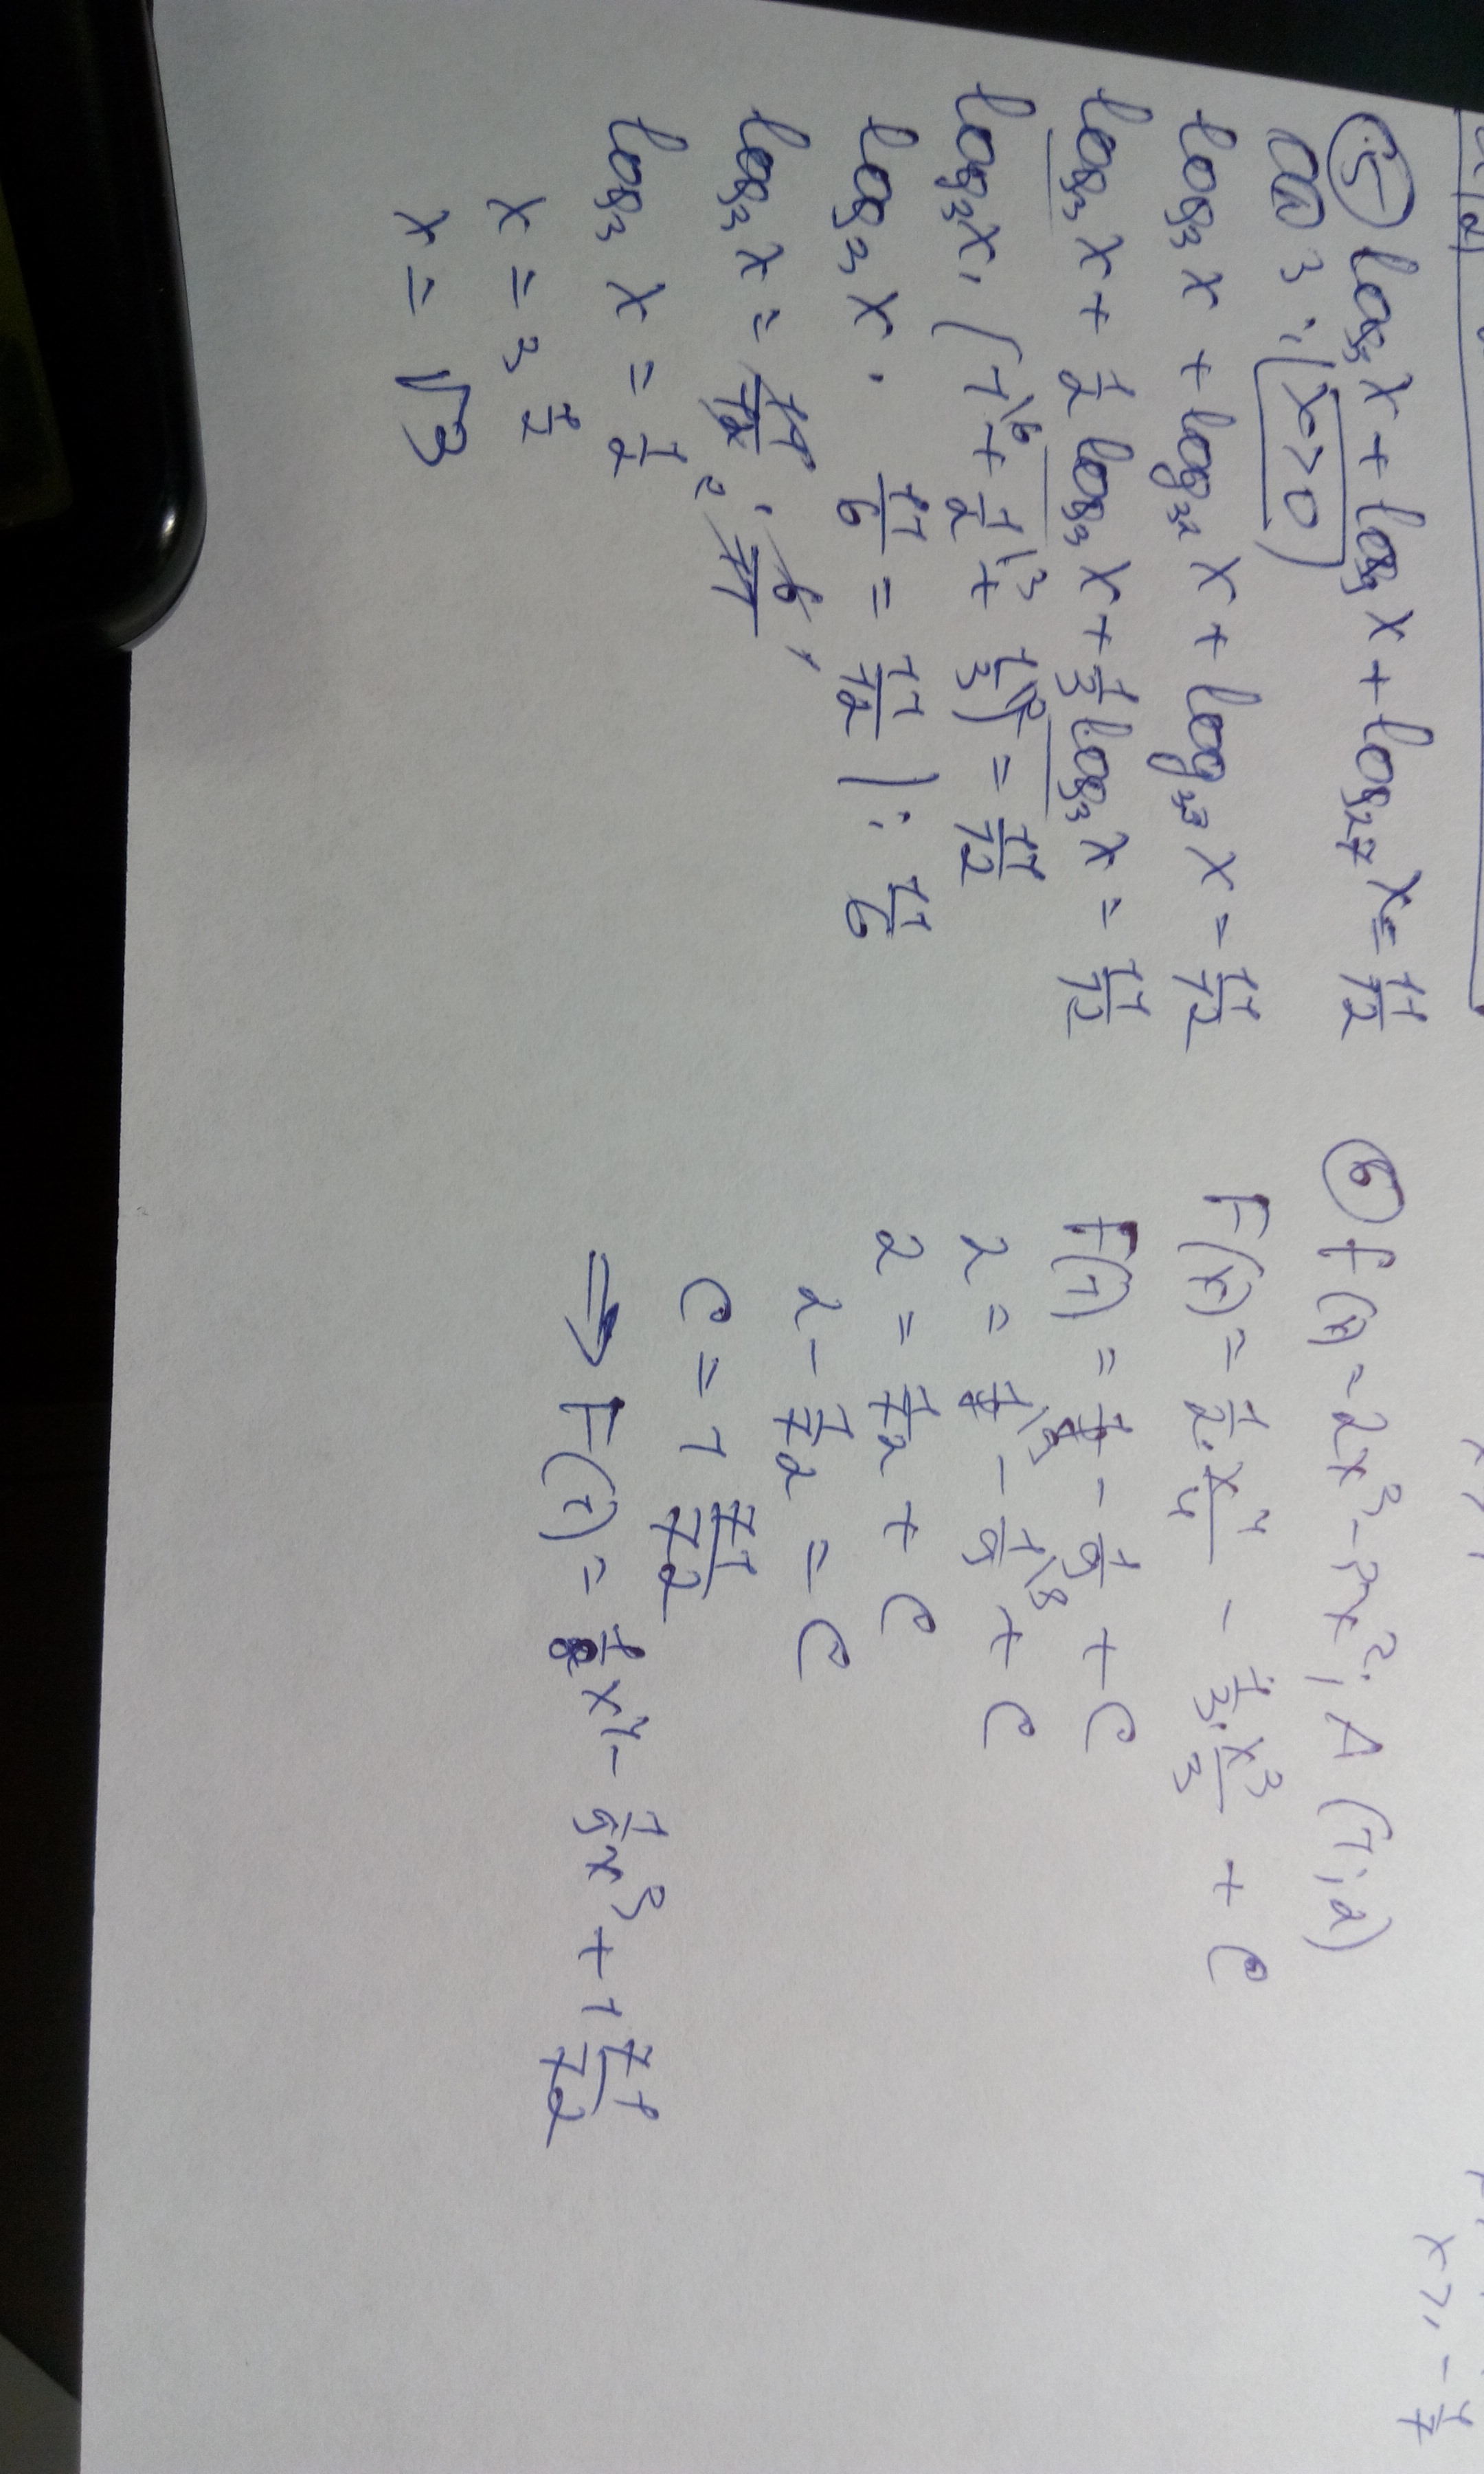 ⑤ log₃ x + log₉ x + log₂₇ x = 11/12
ОДЗ: x > 0
log₃ x + log₃² x + log₃³ x = 11/12
log₃ x + 1/2 log₃ x + 1/3 log₃ x = 11/12
log₃ x · (1\6 + 1/2\3 + 1/3\2) = 11/12
log₃ x · 11/6 = 11/12 | : 11/6
log₃ x = 11/12 · 6/11
2
log₃ x = 1/2
x = 3^(1/2)
x = √3
⑥ f(x) = 2x³ - 3x²; A (1; 2)
F(x) = 1/2 · x⁴/4 - 1/3 · x³/3 + C
F(1) = 1/8 - 1/9 + C
2 = 1/8\9 - 1/9\8 + C
2 = 1/72 + C
2 - 1/72 = C
C = 1 71/72
⇒ F(1) = 1/8 x⁴ - 1/9 x³ + 1 71/72